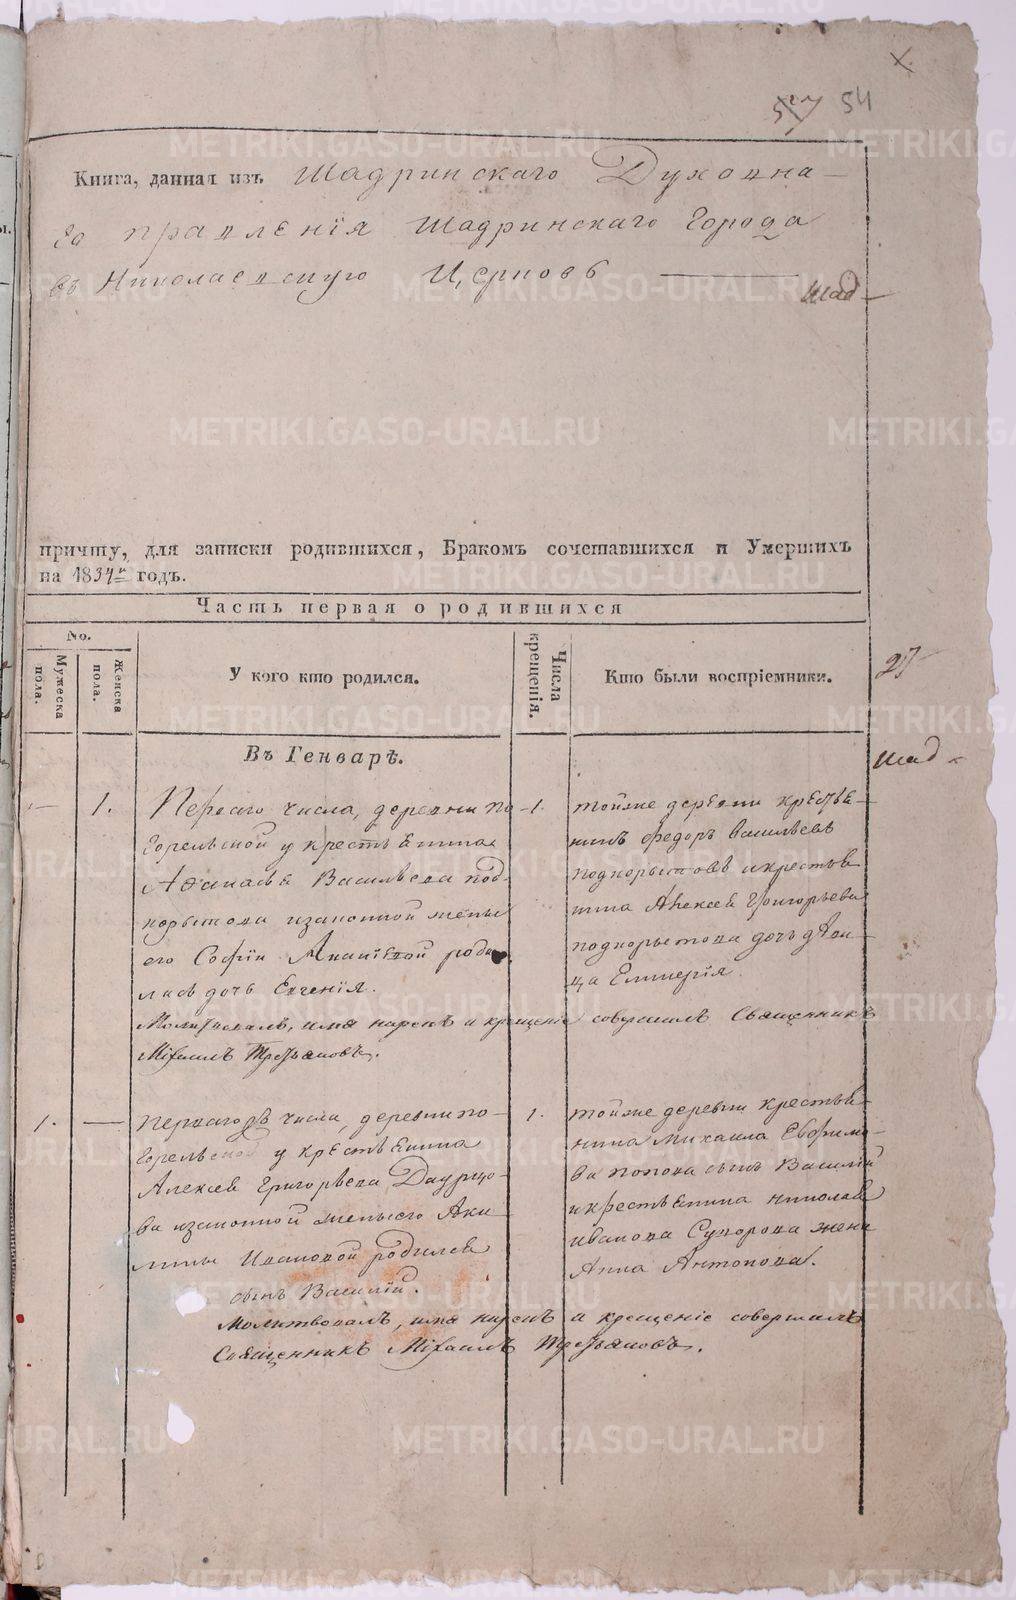 х
57 54
Книга, данная изъ Шадринскаго Духовна-
го правленія Шадринскаго Города
въ Николаевскую Церковь
Шад-
причту, для записки родившихся, Бракомъ сочетавшихся и Умершихъ
на 1834й годъ.
Часть первая о родившихся
No.
Мужеска пола.
Женска пола.
У кого кто родился.
Числа крещенія.
Кто были воспріемники.
27
Въ Генварѣ.
Шад-
1.
Перваго числа, деревни По-
горельской у крестьянина
Афанасья Васильева под-
корытова изаконной жены
его Софіи роди
лась дочь Евгенія.
Молитвовалъ, имя нарекъ и крещеніе совершилъ Священникъ
Михаилъ Третьяковъ.
1.
тойже деревни крестья-
нинъ Федоръ Васильевъ
подкорытовъ икрестья
нина Алексея Григорьева
подкорытова дочь дѣви-
ца Еликерія.
1.
Перваго числа, деревни по-
горельской у крестьянина
Алексея Григорьева Даурцо-
ва изаконной жены его Аки
лины Ивановой родился
сынъ Василій.
Молитвовалъ, имя нарекъ и крещеніе совершилъ
Священникъ Михаилъ Третьяковъ.
1.
тойже деревни крестья-
нина михаила Евфимо-
ва попова сынъ Василій
икрестьянина николая
иванова Сухорова жена
Анна Антонова.
METRIKI.GASO-URAL.RU